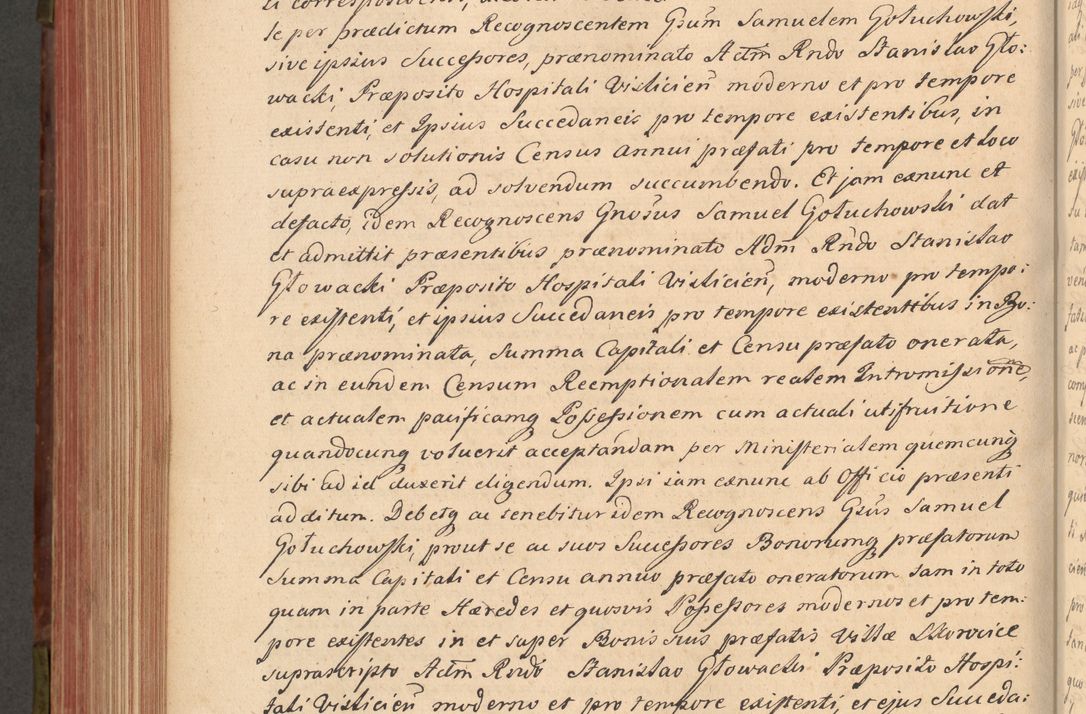 se per prædictum Recognoscentem Gsum̃ Samuelem Gołuchowski,
sive ipsius Successores, prænominato Adm̃ Rndo Stanislao Gło:
wacki, Præposito Hospitali Vislicien̄ moderno et pro tempore
existenti, et Ipsius Succedaneis pro tempore existentibus, in
casu non solutionis Census annui præfati pro tempore et loco
supraexpressis, ad solvendum succumbendo. Et jam exnunc et
defacto, idem Recognoscens Gnosus Samuel Gołuchowski dat
et admittit præsentibus prænominato Adm̃ Rndo Stanislao
Głowacki Præposito Hospitali Vislicien̄, moderno pro tempo:
re existenti, et ipsius Succedaneis pro tempore existentibus in Bo:
na prænominata, Summa Capitali et Censu præfato onerata,
ac in eundem Censum Reemptionalem realem Intromissionē,
et actualem pacificamq Possessionem cum actuali utifruitione
quandocunq voluerit acceptandam per Ministerialem quemcunq
sibi ad id duxerit eligendum. Ipsi iam exnunc ab Officio præsenti
additum. Debetq ac tenebitur idem Recognoscens Gsus Samuel
Gołuchowski, prout se ac suos Successores Bonorumq præfatorum
Summa Capitali et Censu annuo præfato oneratorum tam in toto
quam in parte Hæredes et quosvis Possessores modernos et pro tem:
pore existentes in et super Bonis suis præfatis Villæ
suprascripto Adm̃ Rndo Stanislao Głowacki Præposito Hospi:
tali Vislicien̄ moderno et pro tempore existenti, et ejus Succeda: